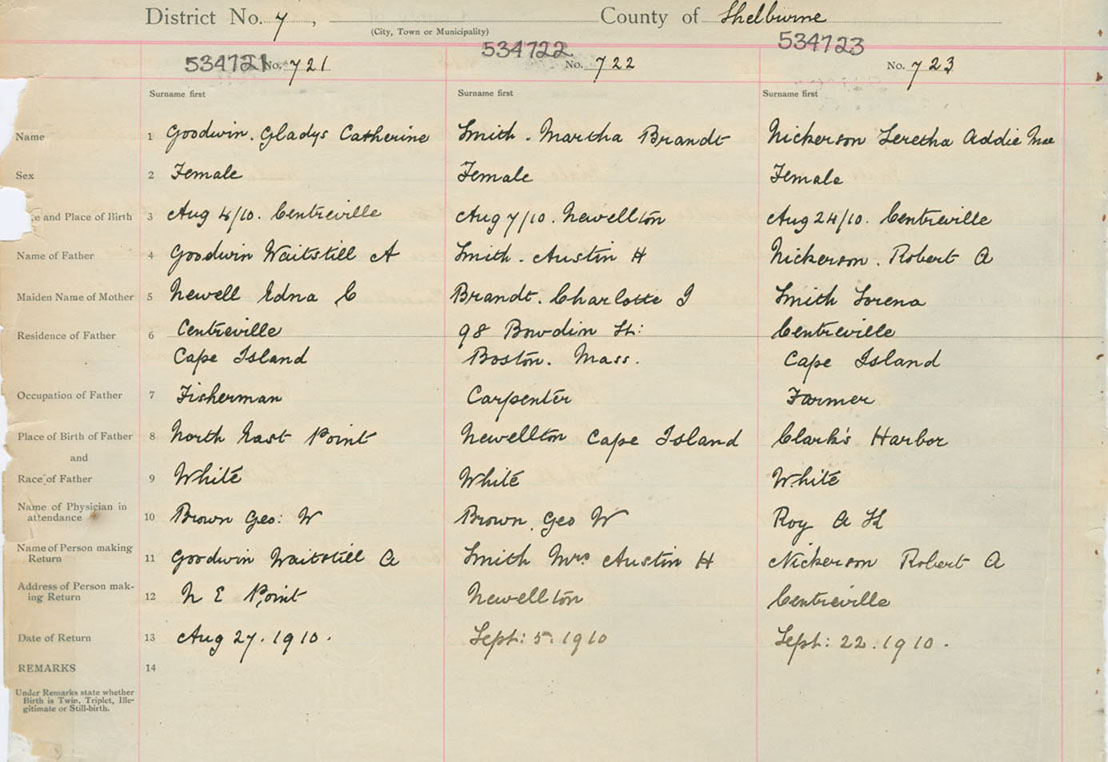 District No. 7, County of Shelburne
(City, Town or Municipality)
534721 534722 534723
No. 721 No. 722 No. 723
Surname first Surname first Surname first
Name 1 Goodwin. Gladys Catherine Smith. Martha Brandt Nickerson Leretha Addie Mae
Sex 2 Female Female Female
and Place of Birth 3 Aug 4/10. Centreville Aug 7/10. Newellton Aug 24/10. Centreville
Name of Father 4 Goodwin Waitstill A Smith. Austin H Nickerson. Robert A
Maiden Name of Mother 5 Newell Edna C Brandt. Charlotte I Smith Lorena
Residence of Father 6 Centreville 98 Bowdin St: Centreville
Cape Island Boston. Mass. Cape Island
Occupation of Father 7 Fisherman Carpenter Farmer
Place of Birth of Father 8 North East Point Newellton Cape Island Clark's Harbor
and
Race of Father 9 White White White
Name of Physician in
attendance 10 Brown Geo: W Brown. Geo W Roy A H
Name of Person making
Return 11 Goodwin Waitstill A Smith Mrs Austin H Nickerson Robert A
Address of Person mak-
ing Return 12 N E Point Newellton Centreville
Date of Return 13 Aug 27. 1910. Sept: 5. 1910 Sept: 22. 1910.
REMARKS 14
Under Remarks state whether
Birth is Twin, Triplet, Ille-
gitimate or Still-birth.